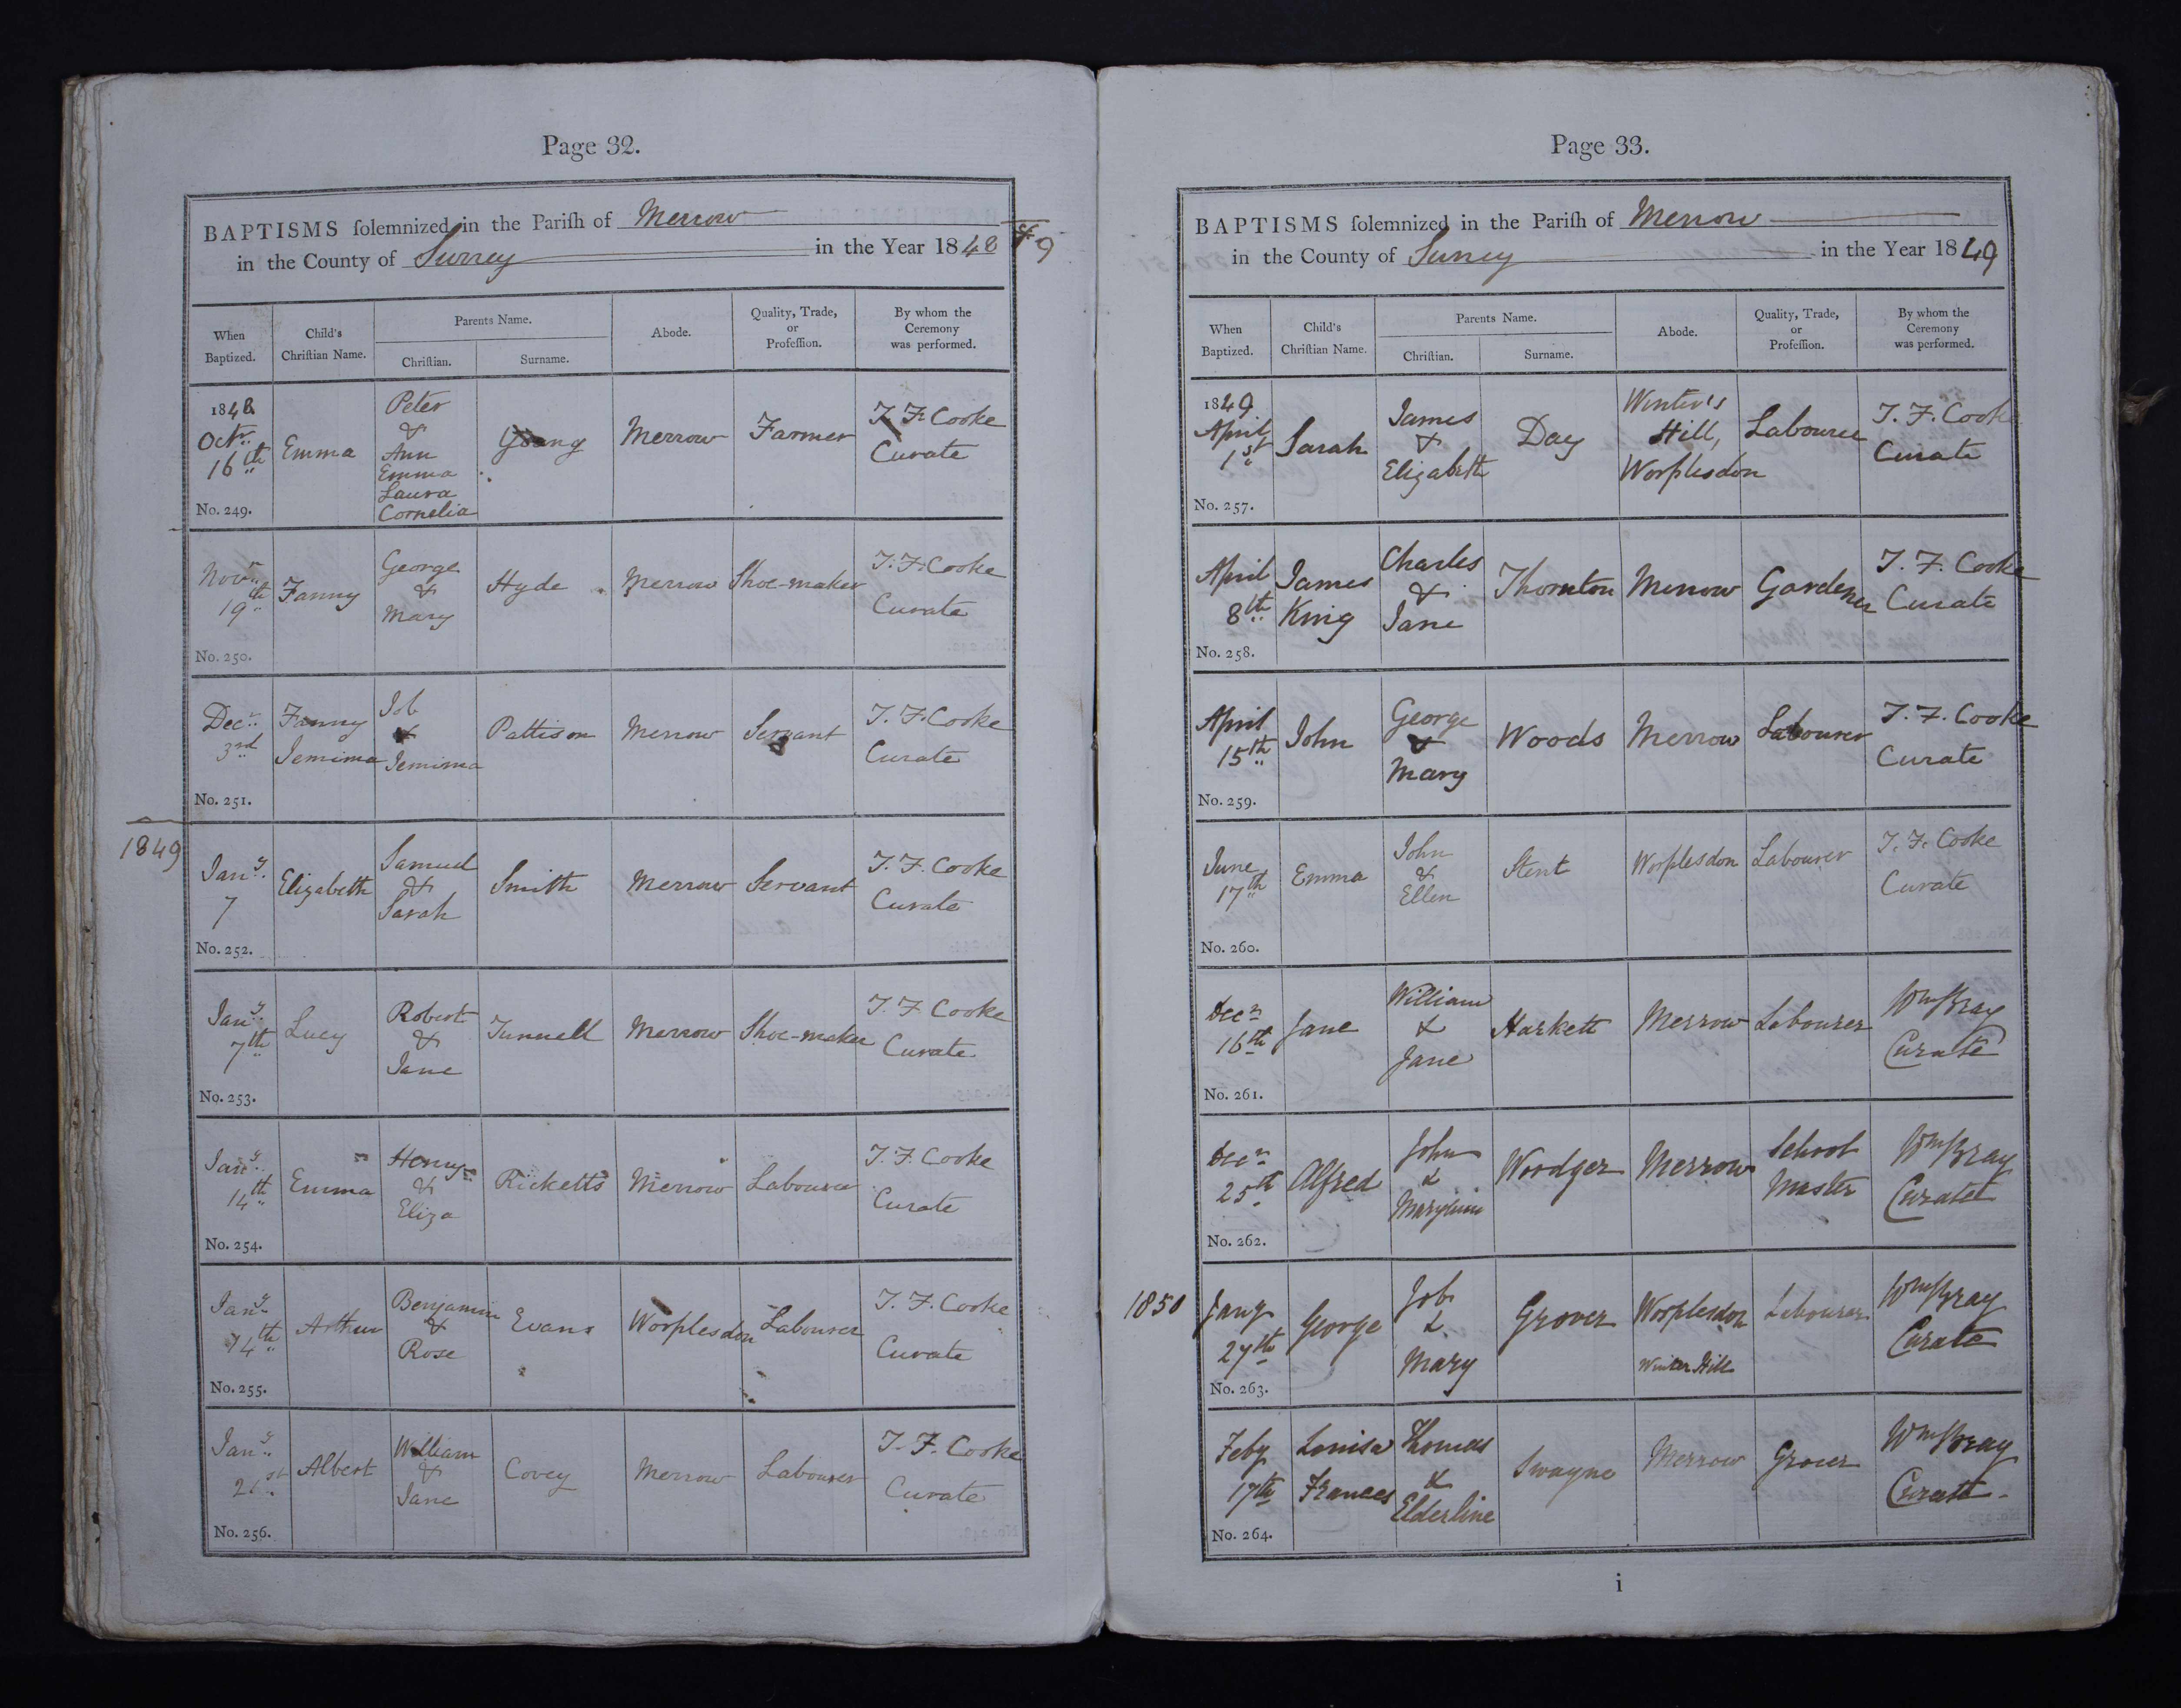 Page 32.
BAPTISMS ſolemnized in the Pariſh of Merrow
in the County of Surrey in the Year 1848 & 49
When Baptized.
Child's Chriſtian Name.
Parents Name.
Chriſtian.
Surname.
Abode.
Quality, Trade, or Profeſſion.
By whom the Ceremony was performed.
1848 Octr. 16th Emma Peter & Ann Emma Laura Cornelia Young Merrow Farmer T. F. Cooke Curate
No. 249.
Novr. 19th Fanny George & Mary Hyde Merrow Shoe-maker T. F. Cooke Curate
No. 250.
Decr. 3rd Fanny Jemima Job & Jemima Pattison Merrow Servant T. F. Cooke Curate
No. 251.
1849
Jany. 7 Elizabeth Samuel & Sarah Smith Merrow Servant T. F. Cooke Curate
No. 252.
Jany. 7th Lucy Robert & Jane Tunnell Merrow Shoe-maker T. F. Cooke Curate
No. 253.
Jany. 14th Emma Henry & Eliza Ricketts Merrow Labourer T. F. Cooke Curate
No. 254.
Jany. 14th Arthur Benjamin & Rose Evans Worplesdon Labourer T. F. Cooke Curate
No. 255.
Jany. 21st Albert William & Jane Covey Merrow Labourer T. F. Cooke Curate
No. 256.
Page 33.
BAPTISMS ſolemnized in the Pariſh of Merrow
in the County of Surrey in the Year 1849
When Baptized.
Child's Chriſtian Name.
Parents Name.
Chriſtian.
Surname.
Abode.
Quality, Trade, or Profeſſion.
By whom the Ceremony was performed.
1849 April 1st Sarah James & Elizabeth Day Winter's Hill, Worplesdon Labourer T. F. Cooke Curate
No. 257.
April 8th James King Charles & Jane Thornton Merrow Gardener T. F. Cooke Curate
No. 258.
April 15th John George & Mary Woods Merrow Labourer T. F. Cooke Curate
No. 259.
June 17th Emma John & Ellen Stent Worplesdon Labourer T. F. Cooke Curate
No. 260.
Decr 16th Jane William & Jane Harkett Merrow Labourer Wm Bray Curate
No. 261.
Decr 25th Alfred John & Maryann Woodger Merrow School Master Wm Bray Curate
No. 262.
1850
Jany 27th George Job & Mary Grover Worplesdon Winter Hill Labourer Wm Bray Curate
No. 263.
Feby 17th Louisa Frances Thomas & Elderline Swayne Merrow Grocer Wm Bray Curate
No. 264.
i